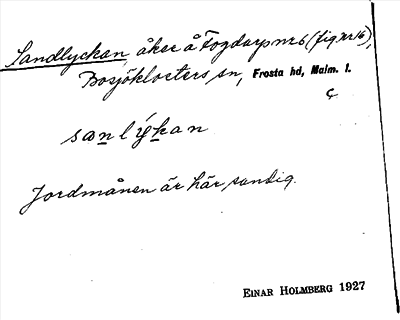 Sandlyckan, åker å Fogdarp nr 6 (fig. nr 16),
Bosjöklosters sn, Frosta hd, Malm. l.
ç
sanlýkan
Jordmånen är här sandig.
EINAR HOLMBERG 1927